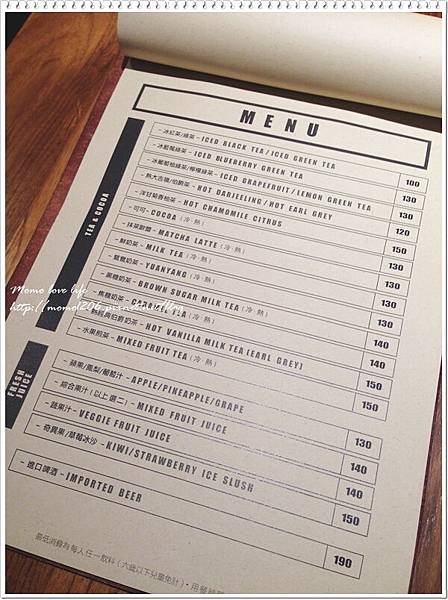 MENU
TEA & COCOA
- 冰紅茶/綠茶 - ICED BLACK TEA / ICED GREEN TEA 100
- 冰藍莓綠茶 - ICED BLUEBERRY GREEN TEA 130
- 冰葡萄柚綠茶/檸檬綠茶 - ICED GRAPEFRUIT / LEMON GREEN TEA 130
- 熱大吉嶺/伯爵茶 - HOT DARJEELING / HOT EARL GREY 130
- 洋甘菊香柚茶 - HOT CHAMOMILE CITRUS 120
- 可可 - COCOA (冷.熱) 150
- 抹茶歐蕾 - MATCHA LATTE (冷.熱) 130
- 鮮奶茶 - MILK TEA (冷.熱) 130
- 鴛鴦奶茶 - YUANYANG (冷.熱) 130
- 黑糖奶茶 - BROWN SUGAR MILK TEA (冷.熱) 130
- 焦糖奶茶 - CARAMEL TEA (冷.熱) 150
伯爵奶茶 - HOT VANILLA MILK TEA [EARL GREY] 150
- 水果煎茶 - MIXED FRUIT TEA (冷.熱) 150
FRESH JUICE
- 蘋果/鳳梨/葡萄汁 - APPLE/PINEAPPLE/GRAPE 130
- 綜合果汁 (以上選二) - MIXED FRUIT JUICE 140
- 蔬果汁 - VEGGIE FRUIT JUICE 140
- 奇異果/草莓冰沙 - KIWI/STRAWBERRY ICE SLUSH 150
- 進口啤酒 - IMPORTED BEER 190
最低消費為每人任一飲料 (六歲以下兒童免計)。用餐時
Momo love life